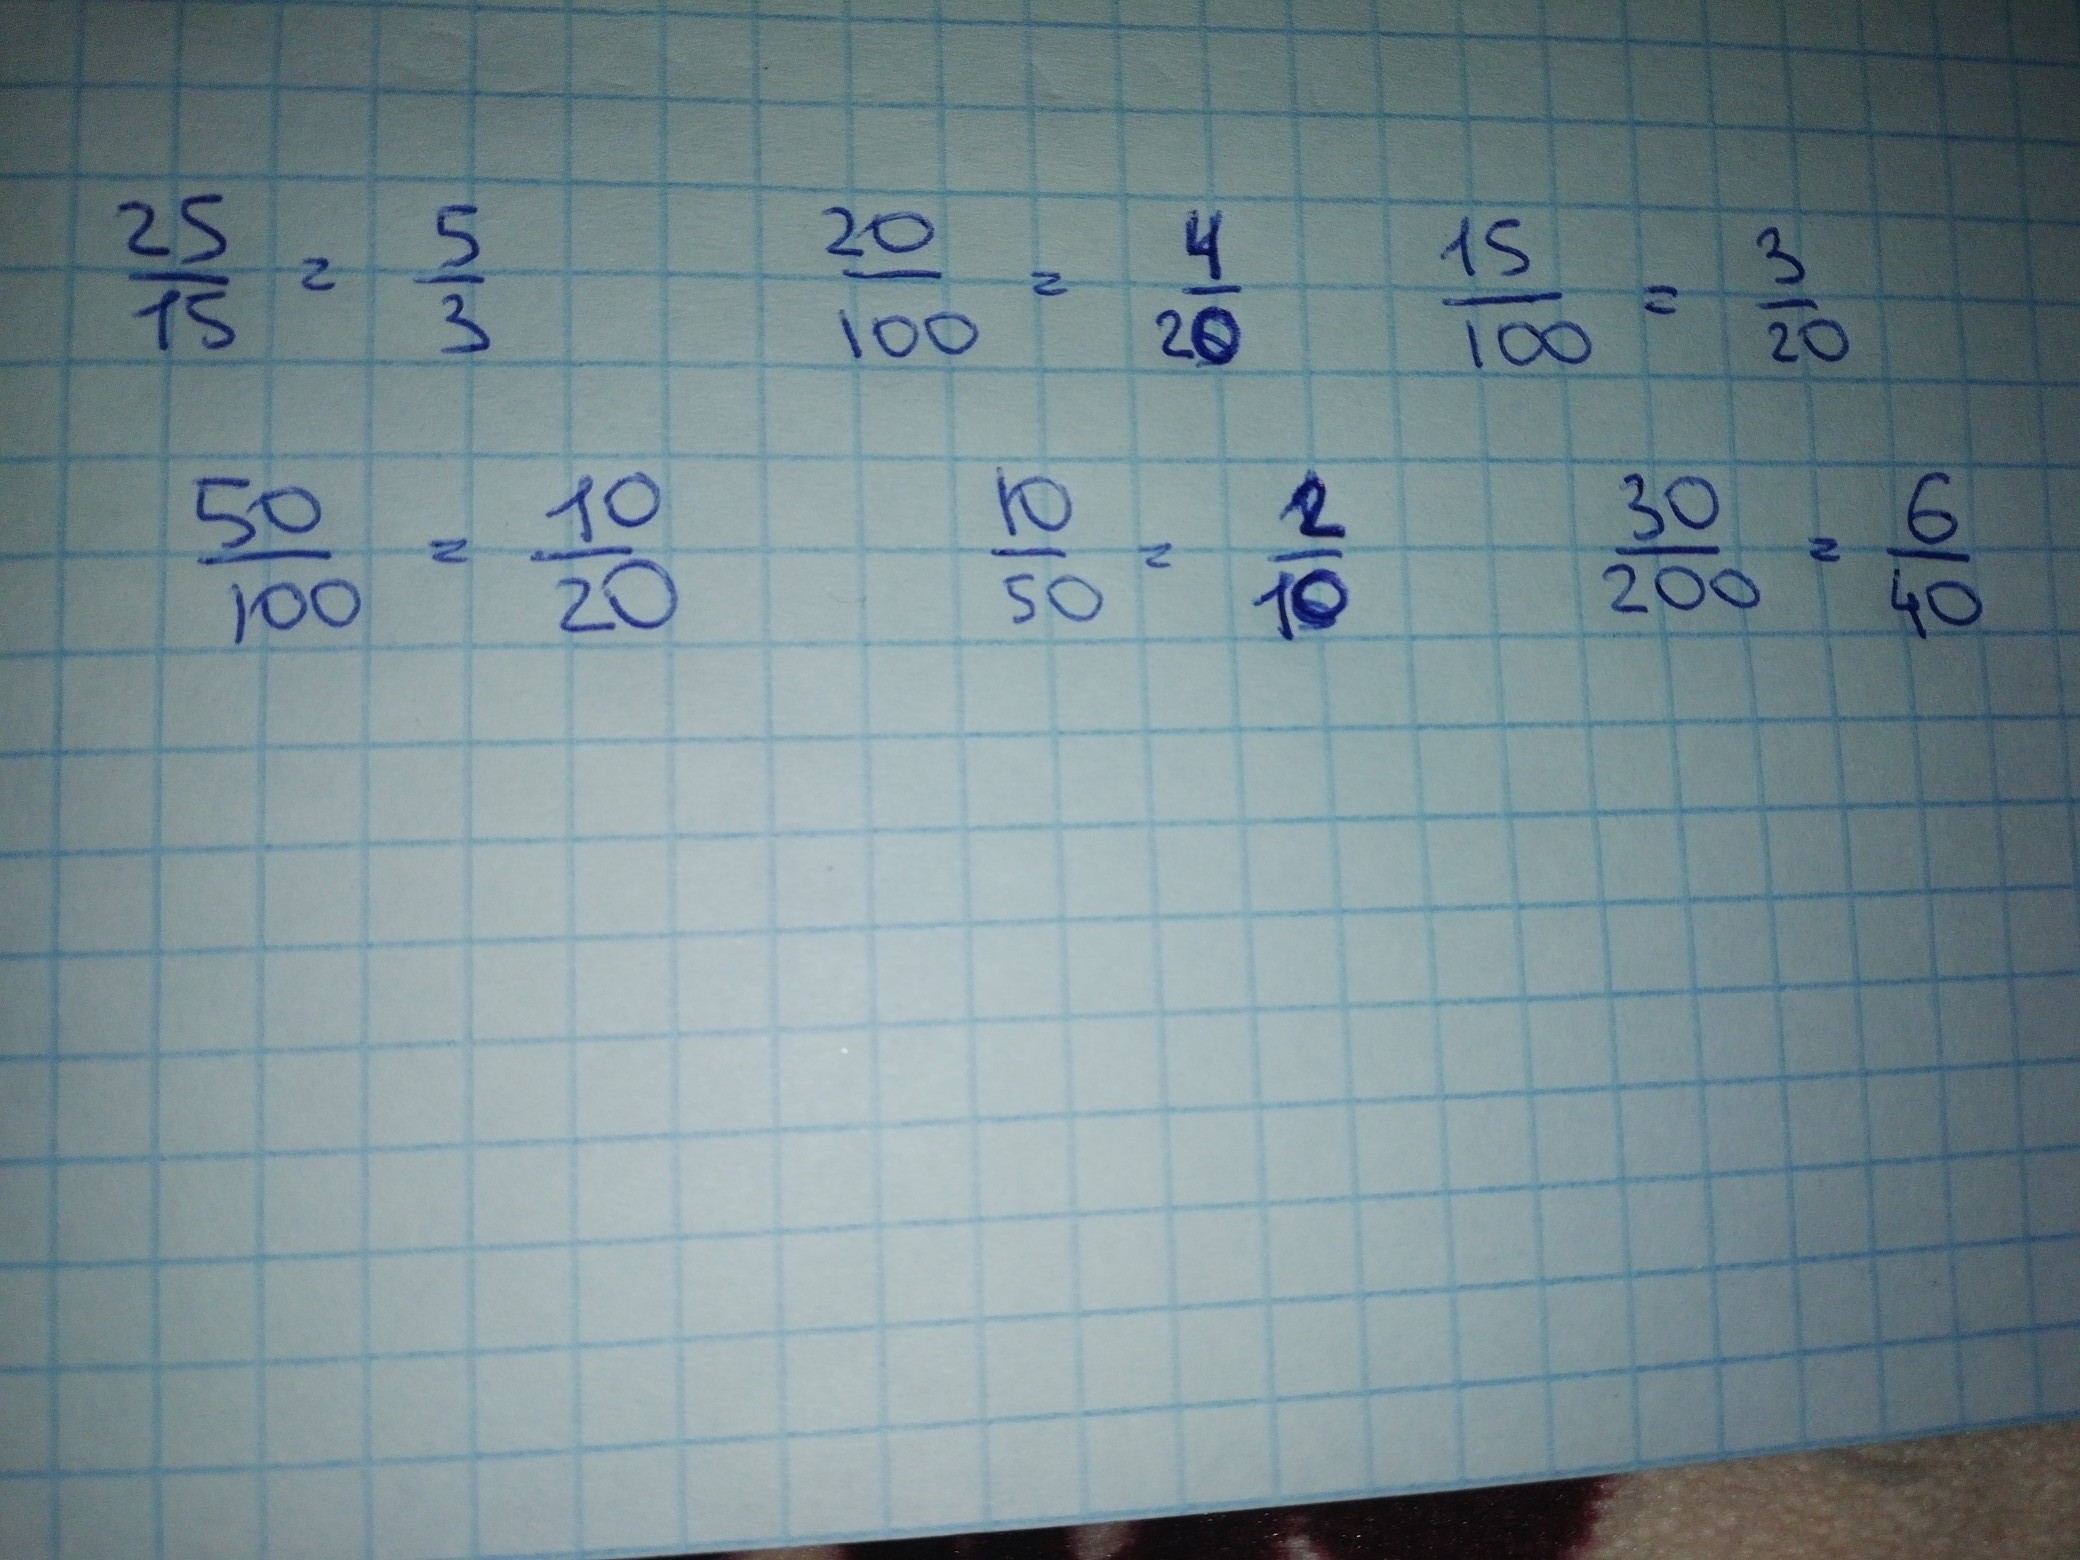 25/15 = 5/3 20/100 = 4/20 15/100 = 3/20
50/100 = 10/20 10/50 = 2/10 30/200 = 6/40